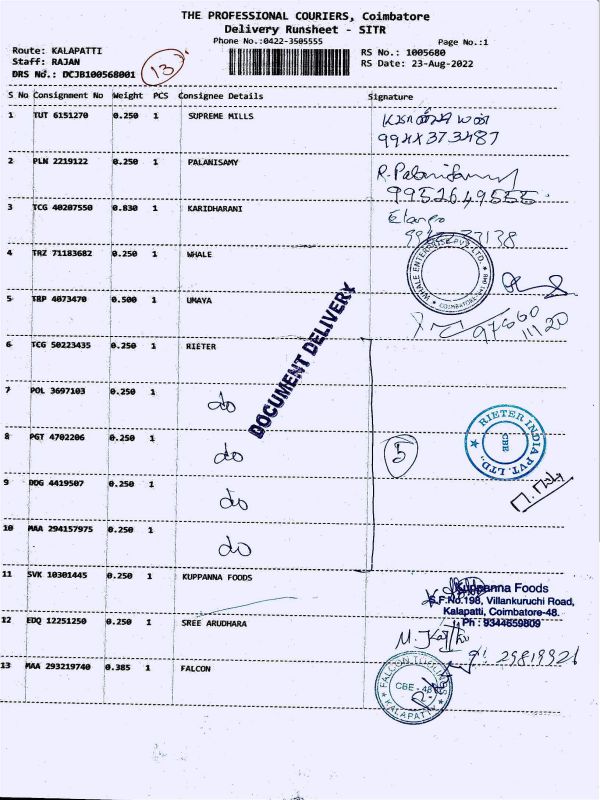 THE PROFESSIONAL COURIERS, Coimbatore
Delivery Runsheet - SITR
Phone No.:0422-3505555
Page No.:1
Route: KALAPATTI
Staff: RAJAN
DRS No.: DCJB100568001
13
RS No.: 1005680
RS Date: 23-Aug-2022
S No Consignment No Weight PCS Consignee Details Signature
1 TUT 6151270 0.250 1 SUPREME MILLS
2 PLN 2219122 0.250 1 PALANISAMY R. Palanisamy
9952649555
3 TCG 40207550 0.830 1 KARIDHARANI Elango
4 TRZ 71183682 0.250 1 WHALE WHALE ENTERPRISE PVT. LTD. COIMBATORE
5 TRP 4073470 0.500 1 UMAYA
DOCUMENT DELIVERY
6 TCG 50223435 0.250 1 RIETER
7 POL 3697103 0.250 1 do
8 PGT 4702206 0.250 1 do 5 RIETER INDIA PVT. LTD. CBE
9 DDG 4419507 0.250 1 do
10 MAA 294157975 0.250 1 do
11 SVK 10301445 0.250 1 KUPPANNA FOODS Kuppanna Foods
S.F.No.198, Villankuruchi Road,
Kalapatti, Coimbatore-48.
Ph : 9344659809
12 EDQ 12251250 0.250 1 SREE ARUDHARA
13 MAA 293219740 0.385 1 FALCON FALCON CBE - 48 KALAPATTI